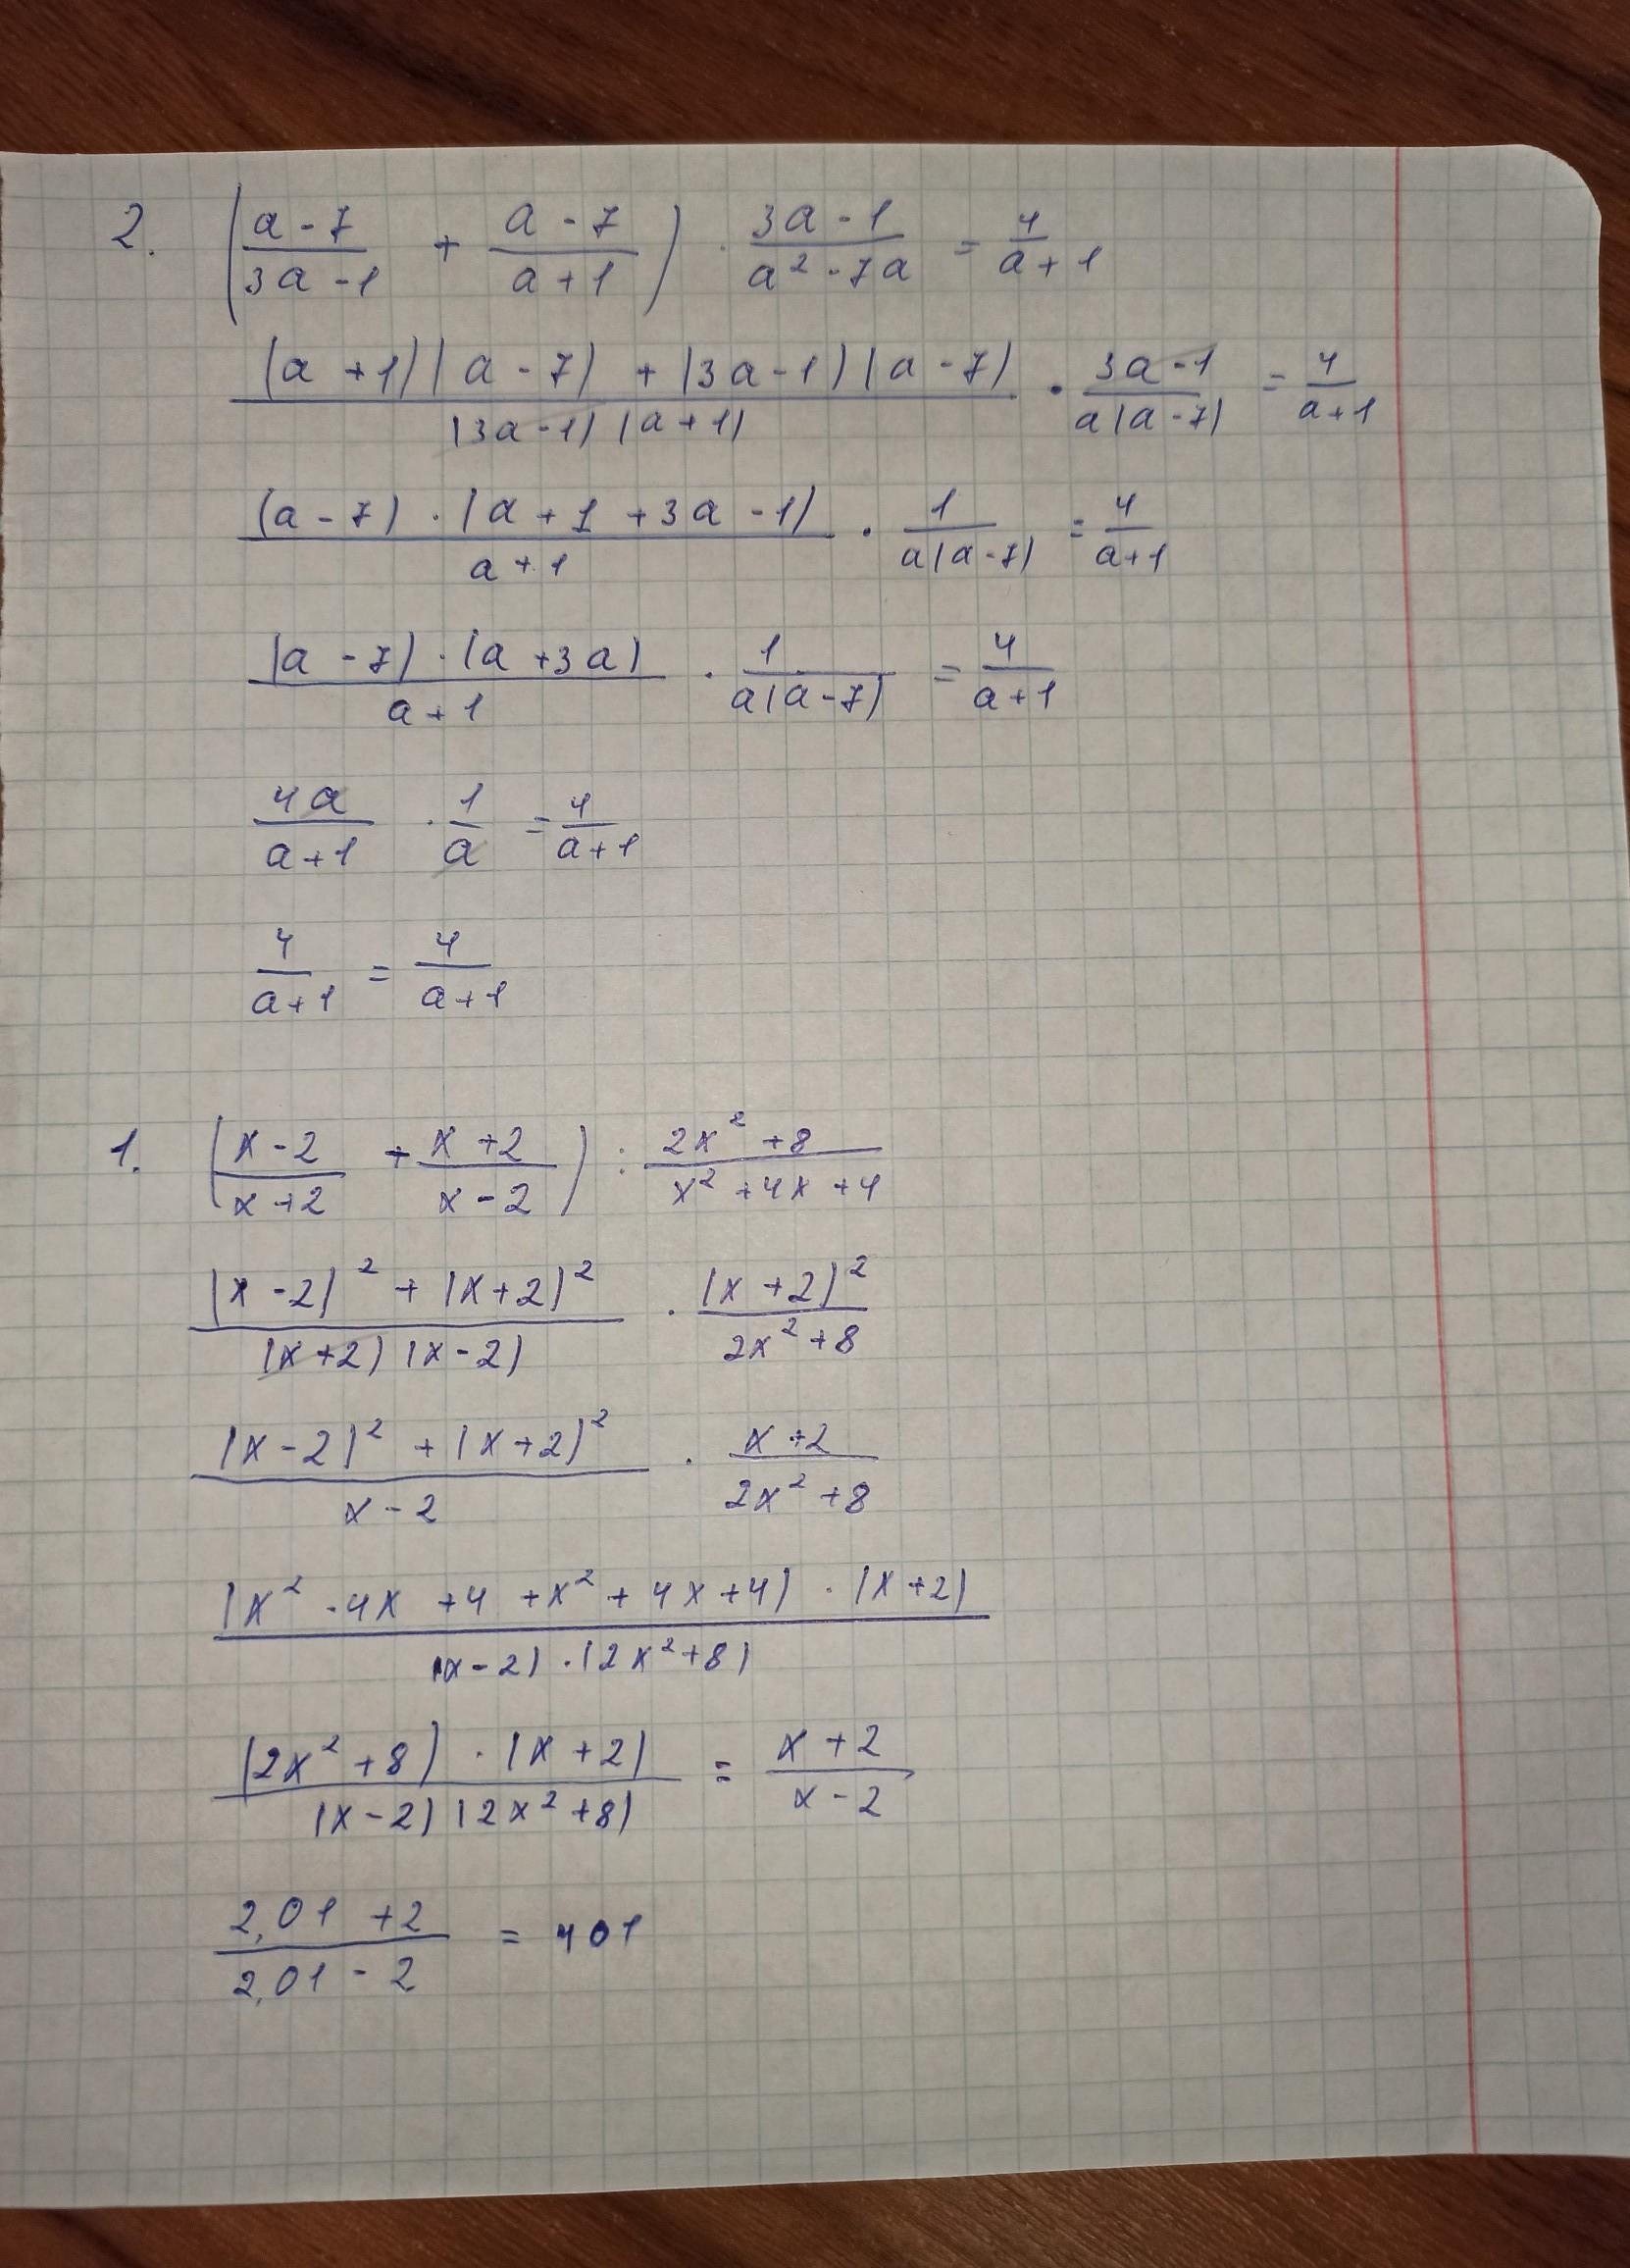 2. (a - 7 / 3a - 1 + a - 7 / a + 1) · 3a - 1 / a² - 7a = 4 / a + 1
(a + 1)(a - 7) + (3a - 1)(a - 7) / (3a - 1)(a + 1) · 3a - 1 / a(a - 7) = 4 / a + 1
(a - 7) · (a + 1 + 3a - 1) / a + 1 · 1 / a(a - 7) = 4 / a + 1
(a - 7) · (a + 3a) / a + 1 · 1 / a(a - 7) = 4 / a + 1
4a / a + 1 · 1 / a = 4 / a + 1
4 / a + 1 = 4 / a + 1
1. (x - 2 / x + 2 + x + 2 / x - 2) : 2x² + 8 / x² + 4x + 4
(x - 2)² + (x + 2)² / (x + 2)(x - 2) · (x + 2)² / 2x² + 8
(x - 2)² + (x + 2)² / x - 2 · x + 2 / 2x² + 8
(x² - 4x + 4 + x² + 4x + 4) · (x + 2) / (x - 2) · (2x² + 8)
(2x² + 8) · (x + 2) / (x - 2)(2x² + 8) = x + 2 / x - 2
2,01 + 2 / 2,01 - 2 = 401